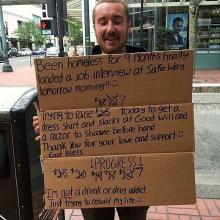 Been homeless for 9 months finally
landed a job interview at Safe Way
tomorrow morning!!
Trying to raise $25 today to get a
dress shirt and slacks at Good Will and
a razor to shave before hand
Thank you for your love and support
God Bless
↓PROGRESS↓
I'm not a drunk or drug addict
Just trying to rebuild my life